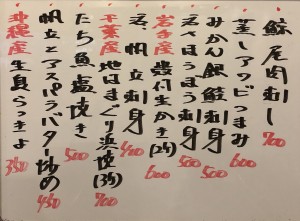 鯨尾肉刺し 700
蒸しアワビつまみ 600
みかん銀鮭刺身 500
活〆ほうぼう刺身 500
岩手産 殻付生かき(2ケ) 600
活〆帆立刺身 400
千葉産 地はまぐり浜焼(3ケ) 700
たち魚塩焼き 500
帆立とアスパラバター炒め 450
沖縄産 生島らっきょ 350